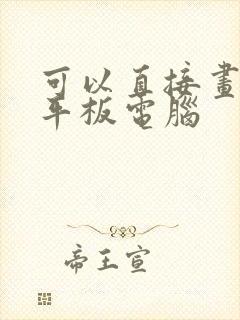 可以直接畫
平板電腦
帝王宣